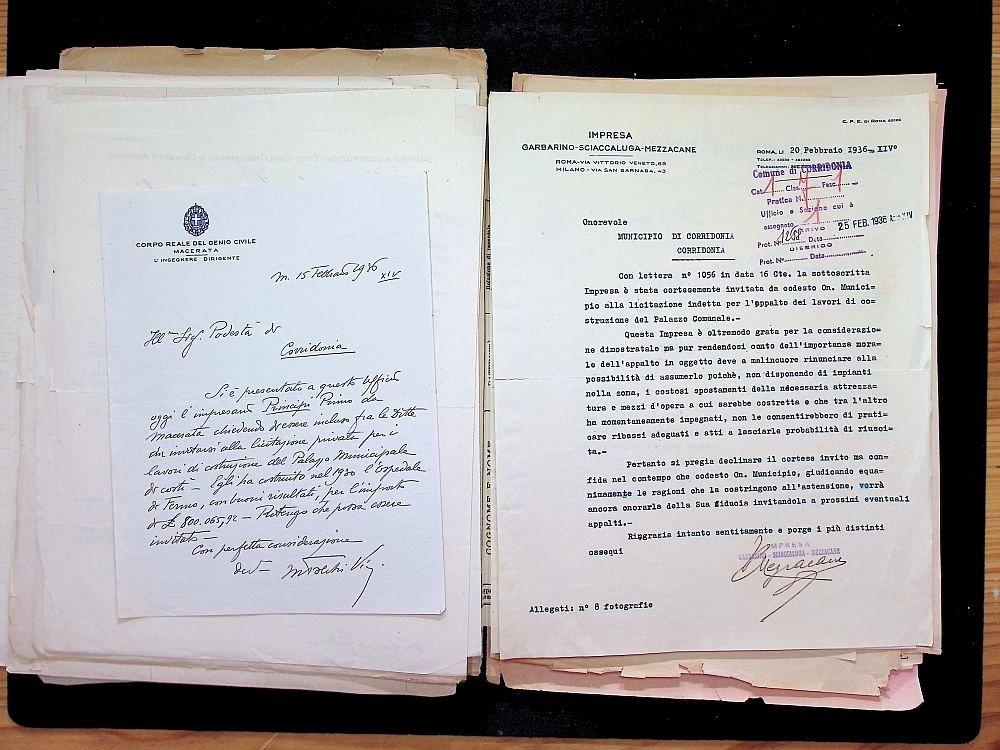 CORPO REALE DEL GENIO CIVILE
MACERATA
L'INGEGNERE DIRIGENTE
M. 15 Febbraio 1936
XIV
Ill^mo Sig. Podestà di
Corridonia
Si è presentato a questo Ufficio
oggi l'impresario Principi Primo da
Macerata chiedendo di essere incluso fra le Ditte
da invitarsi alla licitazione privata per i
lavori di costruzione del Palazzo Municipale
di costì – Egli ha costruito nel 1930 l'Ospedale
di Fermo, con buoni risultati, per l'importo
di £ 800.065,92 – Ritengo che possa essere
invitato –
Con perfetta considerazione
COGNOME E NOME
C. P. E. DI ROMA
IMPRESA
GARBARINO-SCIACCALUGA-MEZZACANE
ROMA-VIA VITTORIO VENETO, 89
MILANO - VIA SAN BARNABA, 43
ROMA, LI 20 Febbraio 1936= XIV°
TELEF.:
TELEGRAMMI:
Comune di CORRIDONIA
Cat. 1 Clas. 7 Fasc. 1
Pratica N.
Ufficio e Sezione cui è
assegnato
ARRIVO
Prot. N° 1268 Data 25 FEB. 1936 A. XIV
Prot. N° Data
Onorevole
MUNICIPIO DI CORRIDONIA
CORRIDONIA
Con lettera n° 1056 in data 16 Cte. la sottoscritta
Impresa è stata cortesemente invitata da codesto On. Munici=
pio alla licitazione indetta per l'appalto dei lavori di co=
struzione del Palazzo Comunale.-
Questa Impresa è oltremodo grata per la considerazio=
ne dimostratale ma pur rendendosi conto dell'importanza mora=
le dell'appalto in oggetto deve a malincuore rinunciare alla
possibilità di assumerlo poichè, non disponendo di impianti
nella zona, i costosi spostamenti della necessaria attrezza=
tura e mezzi d'opera a cui sarebbe costretta e che tra l'altro
ha momentaneamente impegnati, non le consentirebbero di prati=
care ribassi adeguati e atti a lasciarle probabilità di riusci=
ta.-
Pertanto si pregia declinare il cortese invito ma con=
fida nel contempo che codesto On. Municipio, giudicando equa=
nimamente le ragioni che la costringono all'astensione, vorrà
ancora onorarla della Sua fiducia invitandola a prossimi eventuali
appalti.-
Ringrazia intanto sentitamente e porge i più distinti
ossequi
IMPRESA
GARBARINO - SCIACCALUGA - MEZZACANE
Mezzacane
Allegati: n° 8 fotografie